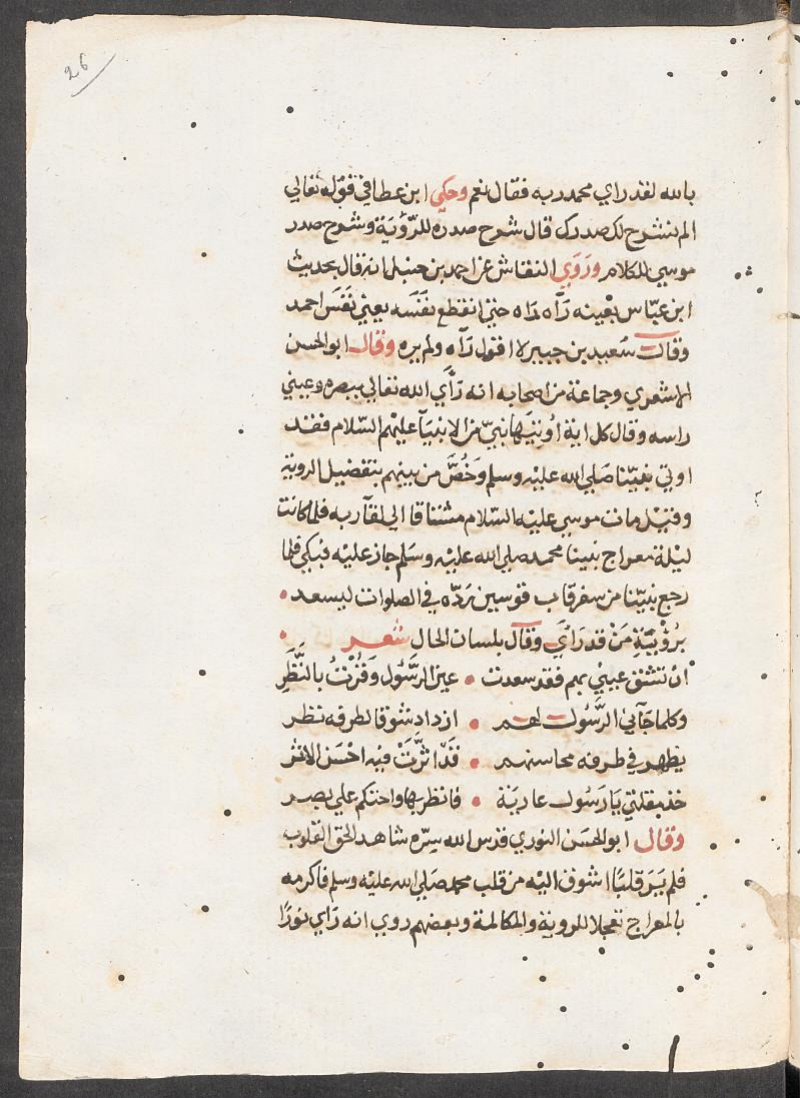 26
بالله لقد راي محمد ربه فقال نعم وحكي ابن عطا في قوله تعالي
الم نشرح لك صدرك قال شرح صدره للرؤية وشرح صدر
موسي للكلام وروي النقاش عن احمد بن حنبل انه قال بحديث
ابن عباس بعينه رآه رآه حتي انقطع نفسه يعني نفس احمد
وقال سعيد بن جبير لا اقول رآه ولم يره وقال ابو الحسن
الاشعري وجماعة من اصحابه انه رأي الله تعالي ببصره وعيني
راسه وقال كل اية اوتيها نبي من الانبيآ عليهم السلام فقد
اوتي نبينا صلي الله عليه وسلم وخص من بينهم بتفضيل الروية
وقيل مات موسي عليه السلام مشتاقا الي لقآ ربه فلما كانت
ليلة معراج نبينا محمد صلي الله عليه وسلم جاز عليه فبكي فلما
رجع نبينا من سفر قاب قوسين رده في الصلوات ليسعد
برؤية من قد رأي وقال بلسان الحال شعر
ان تشق عيني بهم فقد سعدت عين الرسول وفزت بالنظر
وكلما جآني الرسول لهم ازداد شوقا لطرفه نظر
يظهر في طرفه محاسنهم قد اثرت فيه احسن الاثر
خذ مقلتي يا رسول عارية فانظر بها واحتكم علي بصر
وقال ابو الحسن النوري قدس الله سره شاهد الحق القلوب
فلم ير قلبا اشوق اليه من قلب محمد صلي الله عليه وسلم فاكرمه
بالمعراج تعجلا للروية والمكالمة وبعضهم روي انه راي نورا